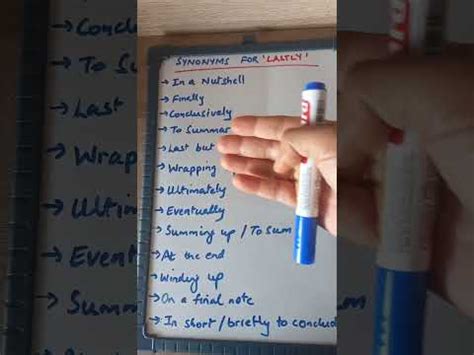 SYNONYMS FOR 'LASTLY'
→ In a Nutshell
→ Finally
→ Conclusively
→ To Summar
→ Last but
→ Wrapping
→ Ultimately
→ Eventually
→ Summing up / To Sum
→ At the end
→ Winding up
→ On a final note
→ In short / briefly to conclude